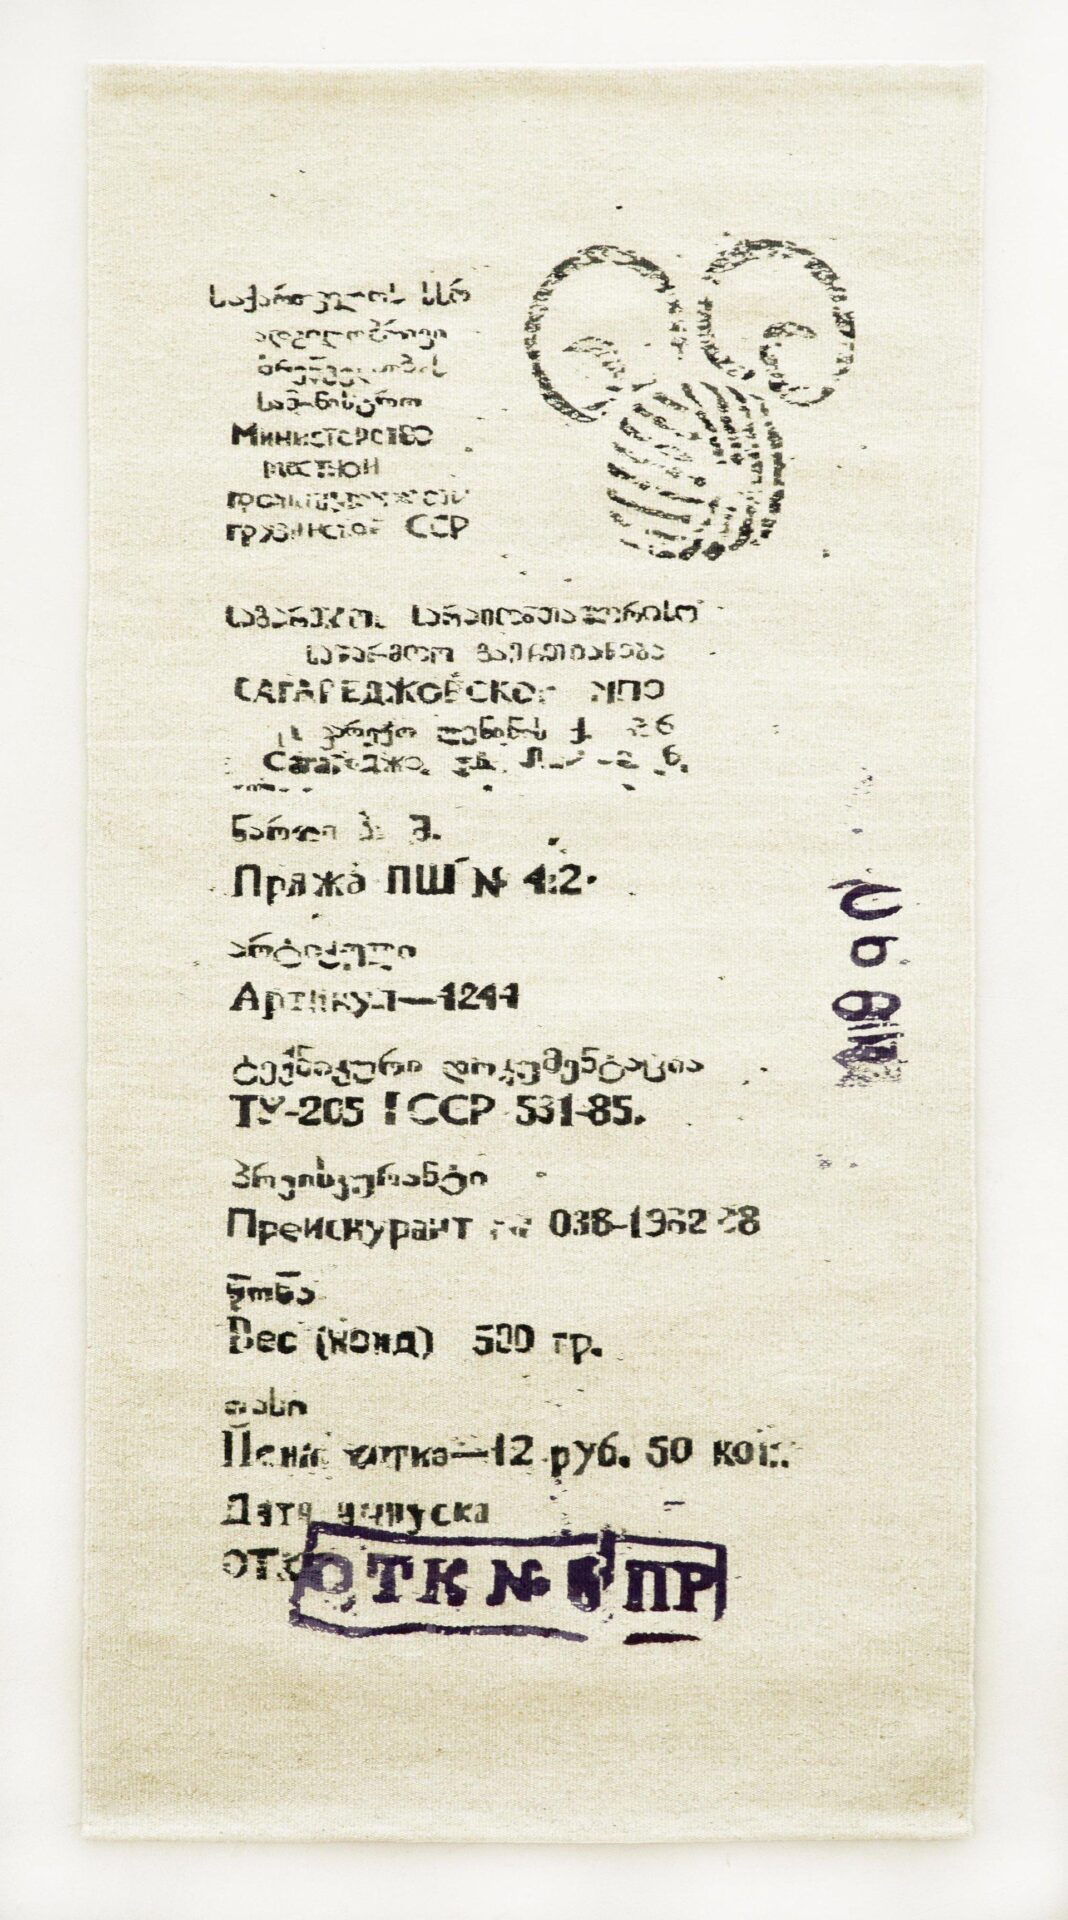 საქართველოს სსრ
ადგილობრივი
მრეწველობის
სამინისტრო
Министерство
местной
промышленности
грузинской ССР
საგარეჯოს სარაიონთაშორისო
საწარმოო გაერთიანება
САГАРЕДЖОЕСКОЕ МПО
ლენინის ქ. 26
Сагареджо, 6.
ნართი პ. შ.
Пряжа ПШ № 4:2.
არტიკული
Артикул—4244
ტექნიკური დოკუმენტაცია
ТУ-205 ГССР 531-85.
პრეისკურანტი
Прейскурант 038-1962 88
წონა
Вес (конд) 500 гр.
ფასი
Цена мотка—12 руб. 50 коп.
Дата выпуска
ОТК
ОТК № 6 ПР